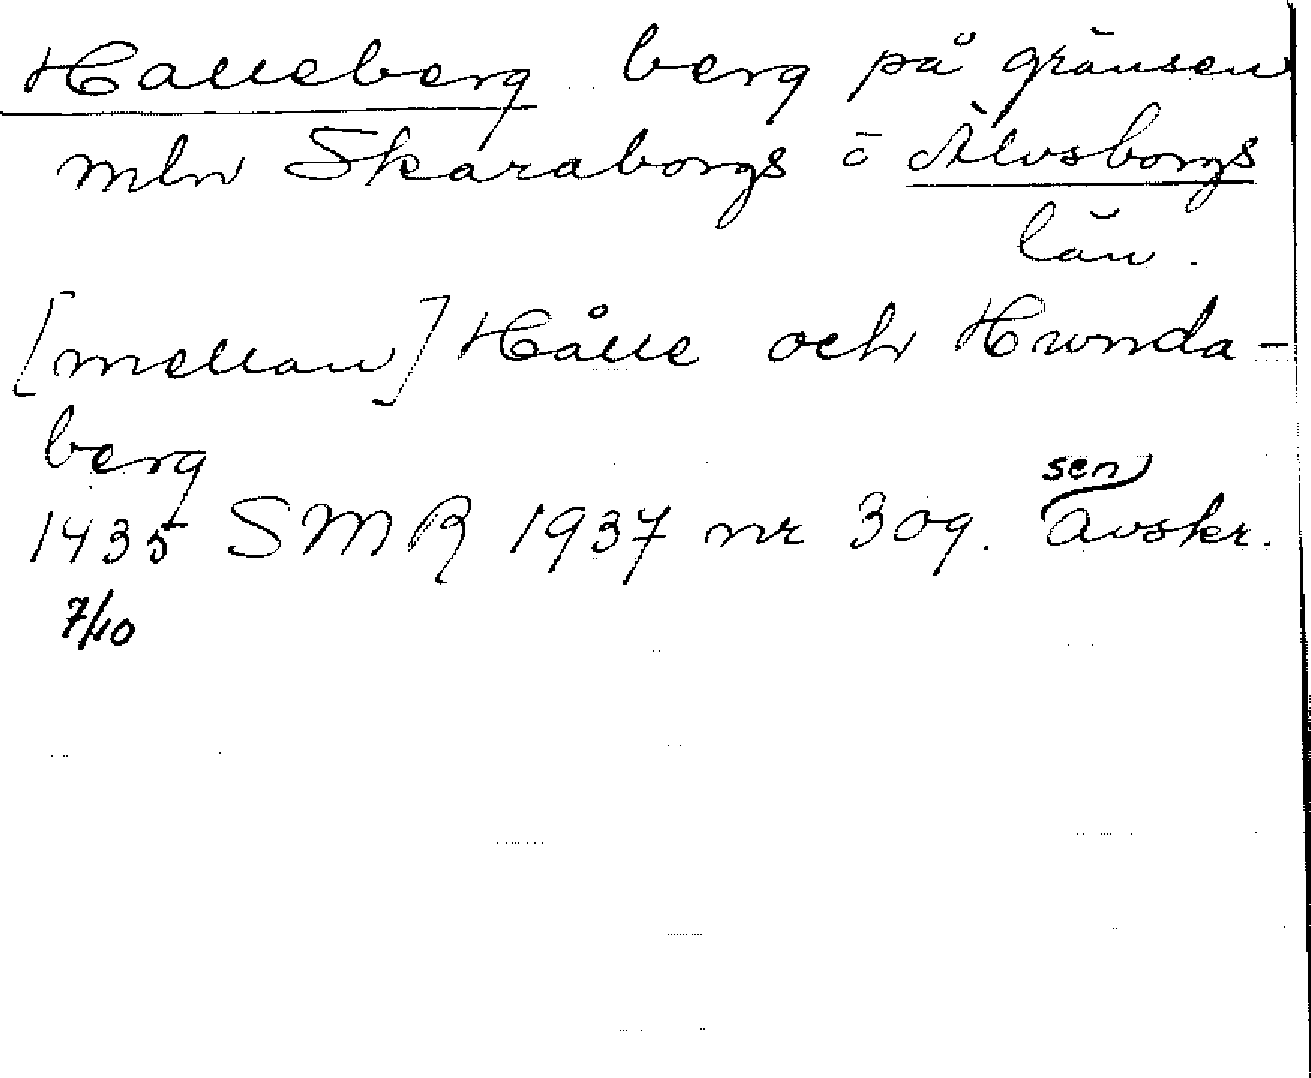 Halleberg berg på gränsen
mln Skaraborgs o Älvsborgs
län.
[mellan] Hålle och Hunda-
berg
sen
1435 SMR 1937 nr 309. avskr.
7/10